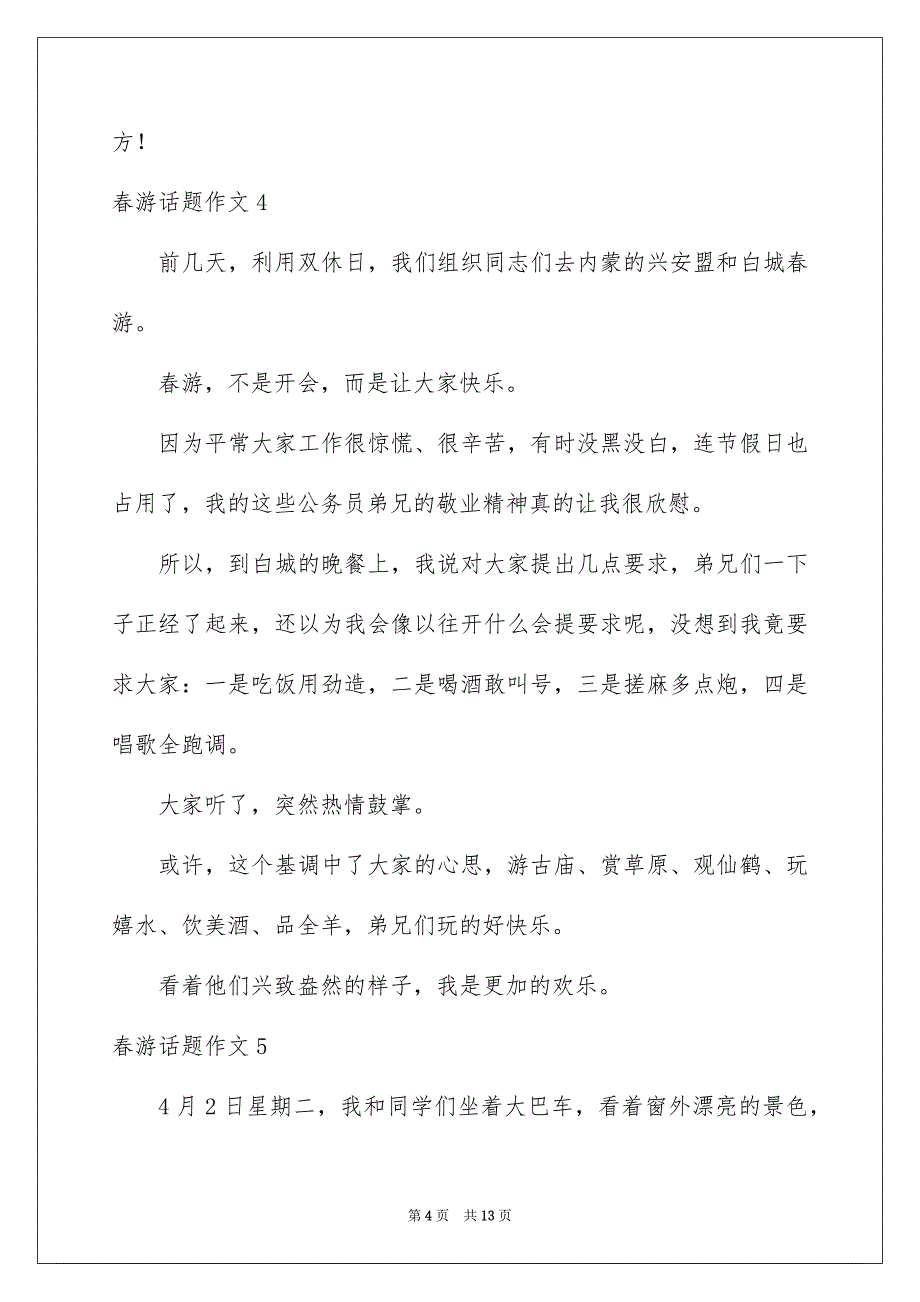 方！
春游话题作文 4
前几天，利用双休日，我们组织同志们去内蒙的兴安盟和白城春
游。
春游，不是开会，而是让大家快乐。
因为平常大家工作很惊慌、很辛苦，有时没黑没白，连节假日也
占用了，我的这些公务员弟兄的敬业精神真的让我很欣慰。
所以，到白城的晚餐上，我说对大家提出几点要求，弟兄们一下
子正经了起来，还以为我会像以往开什么会提要求呢，没想到我竟要
求大家：一是吃饭用劲造，二是喝酒敢叫号，三是搓麻多点炮，四是
唱歌全跑调。
大家听了，突然热情鼓掌。
或许，这个基调中了大家的心思，游古庙、赏草原、观仙鹤、玩
嬉水、饮美酒、品全羊，弟兄们玩的好快乐。
看着他们兴致盎然的样子，我是更加的欢乐。
春游话题作文 5
4 月 2 日星期二，我和同学们坐着大巴车，看着窗外漂亮的景色，
第 4 页 共 13 页